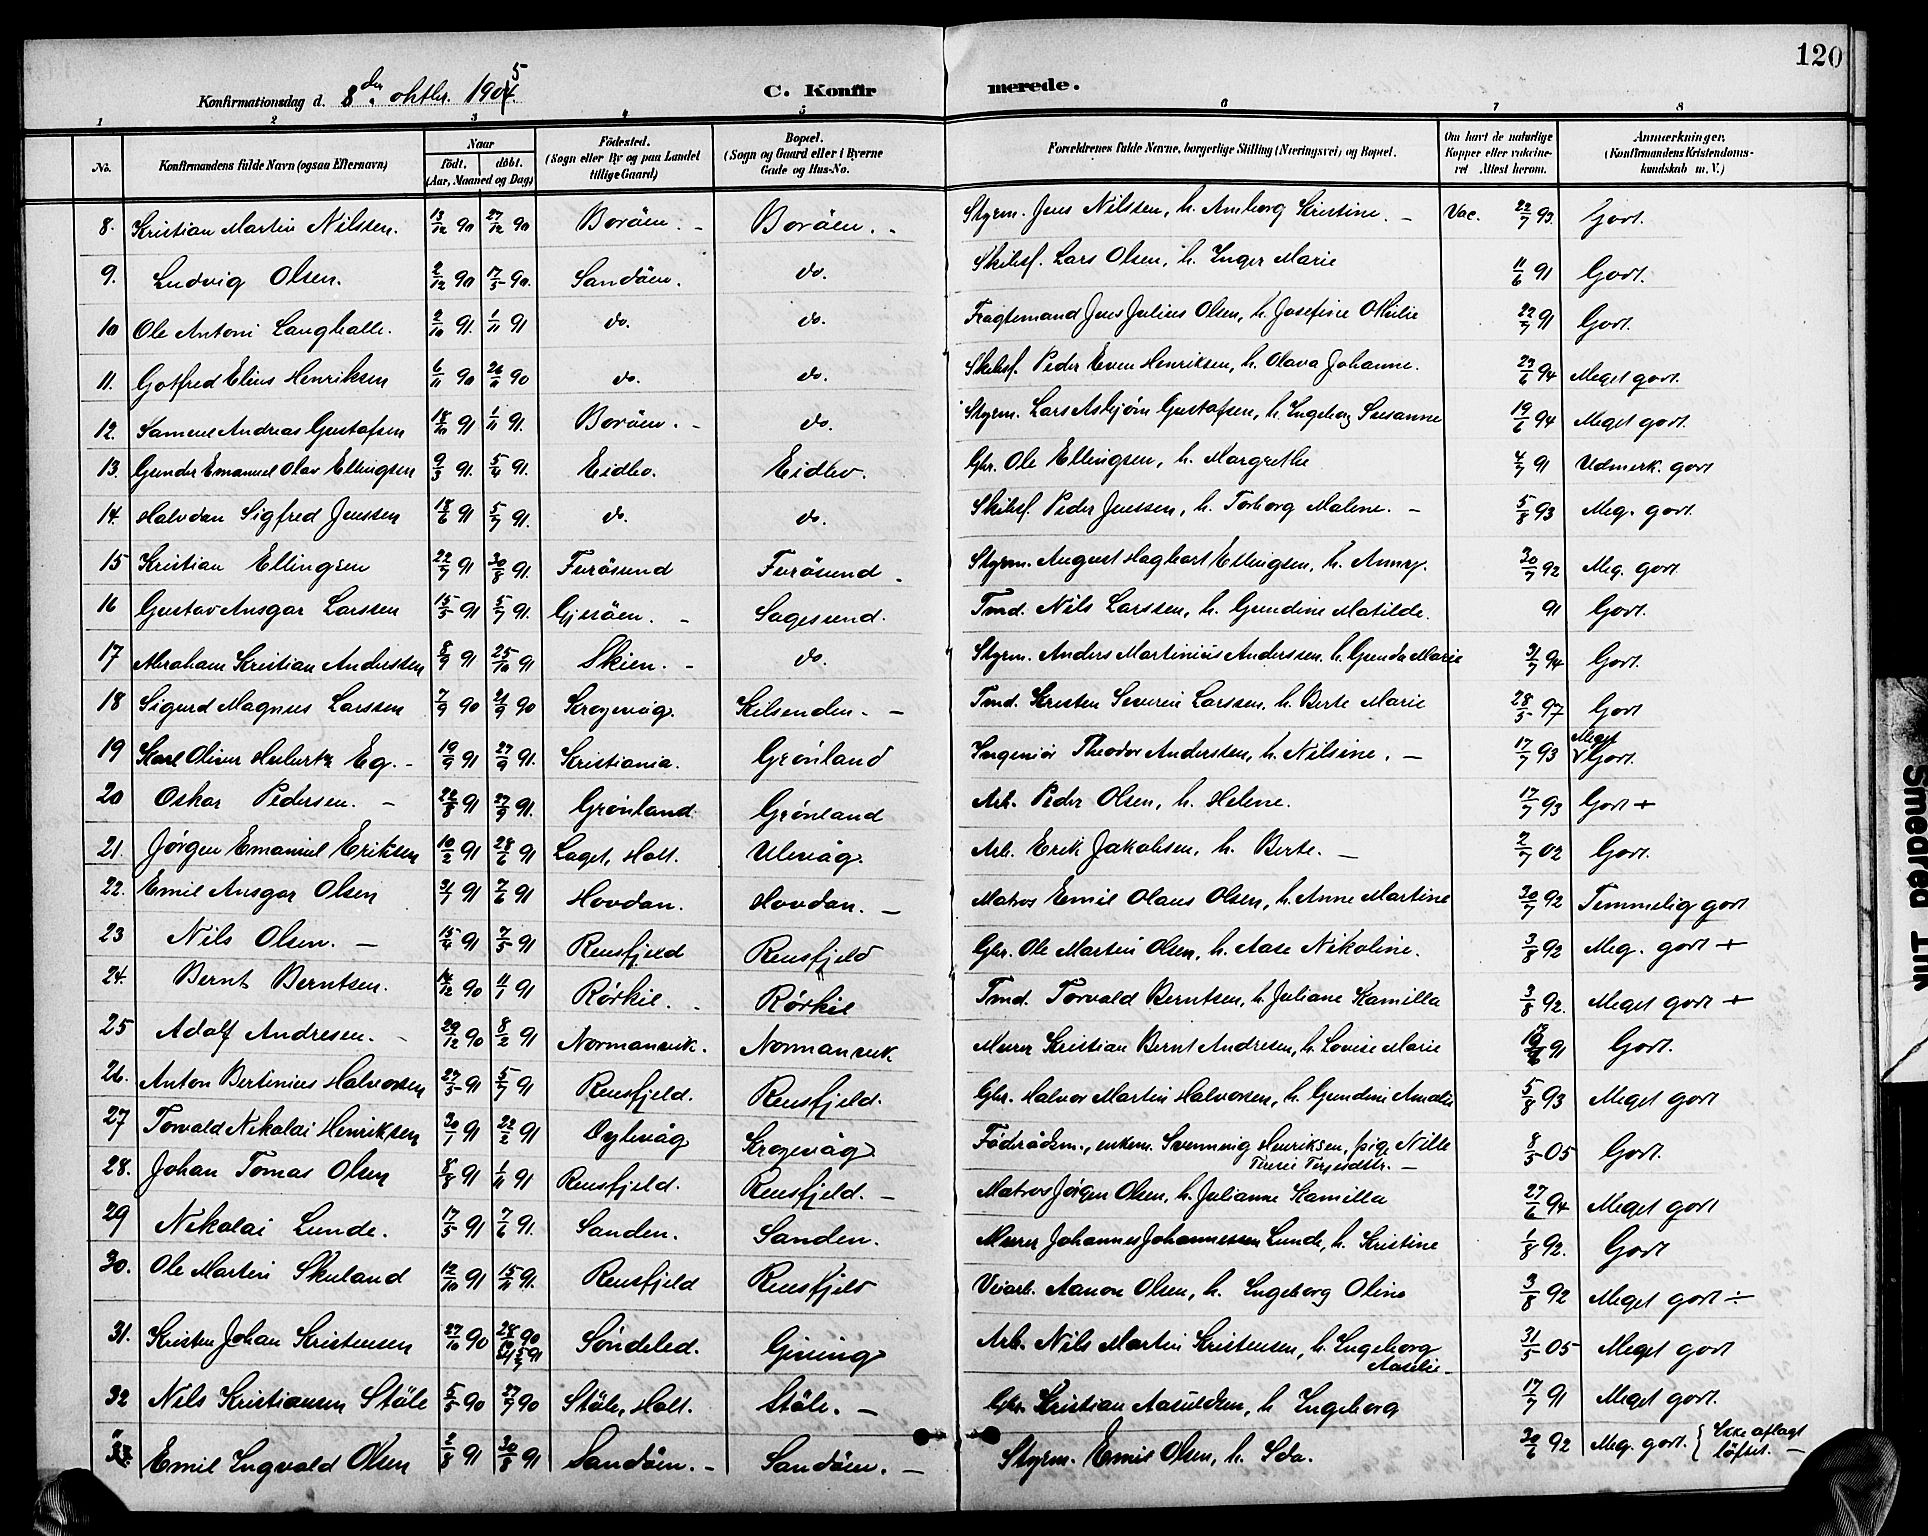 120
Konfirmationsdag d. 8den oktbr. 1905.
C. Konfirmerede.
1 2 3 4 5 6 7 8
No. Konfirmandens fulde Navn (ogsaa Efternavn) Naar født. døbt. (Aar, Maaned og Dag) Fødested. (Sogn eller By og paa Landet tillige Gaard) Bopæl. (Sogn og Gaard eller i Byerne Gade og Hus-No. Forældrenes fulde Navne, borgerlige Stilling (Næringsvei) og Bopæl. Om havt de naturlige Kopper eller vakcineret Attest herom. Anmærkninger. (Konfirmandens Kristendomskundskab m. V.)
8. Kristian Martin Nilssen. 13/12 90 27/12 90 Boröen. - Boröen. - Styrm. Jens Nilssen, h. Amborg Kristine. - Vac. 22/7 93. Godt.
9. Ludvig Olsen. 2/12 90 17/5 90. Sandöen. do. Skibsf. Lars Olsen, h. Inger Marie 11/6 91 Godt.
10 Ole Antoni Langhalle. 2/10 91. 1/11 91 do. do. Fragtemand Jens Julius Olsen, h. Josefine Othilie 22/7 91 Godt.
11. Gotfred Elius Henriksen 6/11 90 26/11 90 do. do. Skibsf. Peder Even Henriksen, h. Olava Johanne. 23/6 94 Meget godt.
12. Samuel Andreas Gustafsen 18/10 91 1/11 91. Boröen. - do. Styrm. Lars Asbjörn Gustafsen, h. Ingeborg Susanne 19/6 94 Meget godt.
13. Gunder Emanuel Olav Ellingsen 9/3 91. 5/4 91. Eidbo. Eidbo. Gbr. Ole Ellingsen, h. Margrethe 4/7 91 Udmerk. godt
14. Halvdan Sigfred Jenssen 18/6 91 5/7 91. do. do. Skibsf. Peder Jenssen, h. Torborg Malene. - 5/8 93 Meg. godt.
15 Kristian Ellingsen 22/7 91 30/8 91. Furösund Furösund - Styrm. August Hagbart Ellingsen, h. Anny. 30/7 92 Meg. godt.
16 Gustav Ansgar Larssen 15/5 91 5/7 91. Gjesöen. - Sagesund. Tmd. Nils Larssen, h. Gundine Matilde. 91 Godt.
17 Abraham Kristian Anderssen 8/9 91 25/10 91 Skien. - do. Styrm. Anders Martinius Anderssen. h. Gunda Marie 31/7 94 Godt.
18 Sigurd Magnus Larssen 7/9 90 21/9 90 Krogevåg. Kilsenden. - Tmd. Kristen Severin Larssen, h. Berte Marie 28/5 97 Godt
19 Karl Oliver Hubertz Eg. - 19/9 91 27/9 91. Kristiania. Grönland Ingeniør Theodor Anderssen, h. Nilsine. - 17/7 93 Meget Godt.
20 Oskar Pedersen. - 22/8 91 27/9 91. Grönland Grönland Arb. Peder Olsen, h. Helene. 17/7 93 Godt +
21. Jørgen Emanuel Eriksen 10/2 91 28/6 91 Laget, Holt. Ulevåg. Arb. Erik Jakobsen, h. Berte. - 2/7 02 Godt.
22. Emil Ansgar Olsen 7/6 91 Hovdan. Hovdan. - Matros Emil Olaus Olsen, h. Anne Martine 30/7 92 Temmelig godt
23 Nils Olsen. - 15/4 91 7/5 91 Rensfjeld Rensfjeld Gbr. Ole Martin Olsen, h. Aase Nikoline. 3/8 92 Meg. godt +
24. Bernt Berntsen. 14/12 90 11/1 91 Rörkil. - Rörkil Tmd. Torvald Berntsen, h. Juliane Kamilla 3/8 92. Meget godt +
25 Adolf Andresen. - 29/12 90 8/2 91 Normansvik. Normansvik Murer Kristian Bernt Andresen, h. Lovise Marie 91 Godt.
26. Anton Bertinius Halvorsen 27/5 91 5/7 91 Rensfjeld. Rensfjeld. Gbr. Halvor Martin Halvorsen, h. Gundine Amalie 5/8 93 Meget godt
27 Torvald Nikolai Henriksen 30/1 91 22/2 91 Dybvåg Krogevåg Födrådsm., enkem. Svennung Henriksen, pige Nille Terjesdtr. - 8/5 05 Godt.
28. Johan Tomas Olsen 8/8 91 1/11 91 Rensfjeld. Rensfjeld. - Matros Jörgen Olsen, h. Julianne Kamilla 27/6 94 Meget godt
29 Nikolai Lunde. 17/5 91 7/6 91. Sanden. Sanden. Murer Johannes Johannessen Lunde, h. Kristine 1/8 92. Godt
30. Ole Martin Skuland 12/10 91 15/11 91. Rensfjeld Rensfjeld Veiarb. Aanon Olsen, h. Ingeborg Oline 3/8 92 Meget godt ÷
31. Kristen Johan Kristensen 27/10 90 28/10 90 Söndeled. Giving Arb. Nils Martin Kristensen, h. Ingeborg Aaselie. 31/5 05 Meget godt
32 Nils Kristiansen Ståle 5/5 90 27/7 90 Ståle, Holt. Ståle. - Gbr. Kristian Aasuldsen, h. Ingeborg 17/7 91 Meget godt.
33. Emil Ingvald Olsen 2/8 91 30/8 91 Sandöen. - Sandöen. - Styrm. Emil Olsen, h. Ida. 30/6 92 Meg. godt. { Ikke aflagt löftet. -
Smeared Ink